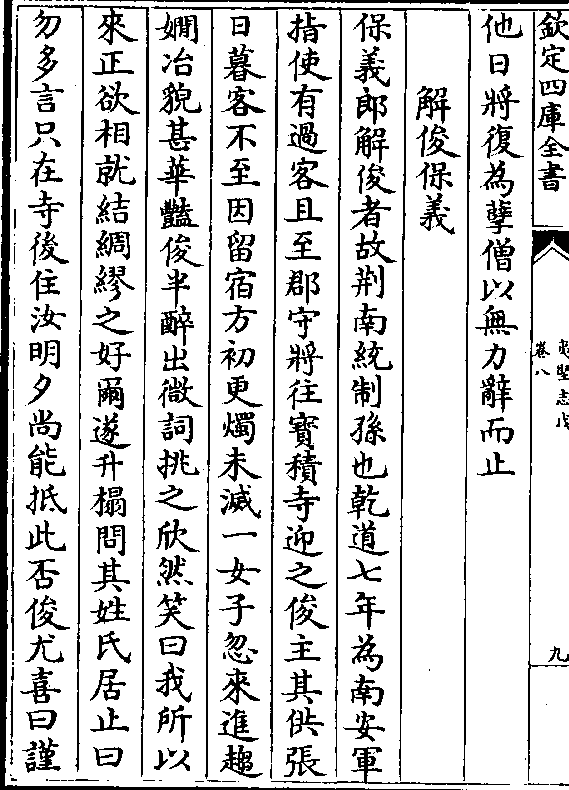 欽定四庫全書
夷堅志戊
卷八
九
他日將復為孽僧以無力辭而止
解俊保義
保義郎解俊者故荆南統制孫也乾道七年為南安軍
指使有過客且至郡守將往寳積寺迎之俊主其供張
日暮客不至因留宿方初更燭未滅一女子忽來進趨
嫺冶貌甚華豔俊半醉出微詞挑之欣然笑曰我所以
來正欲相就結綢繆之好爾遂升榻問其姓氏居止曰
勿多言只在寺後住汝明夕尚能抵此否俊尤喜曰謹